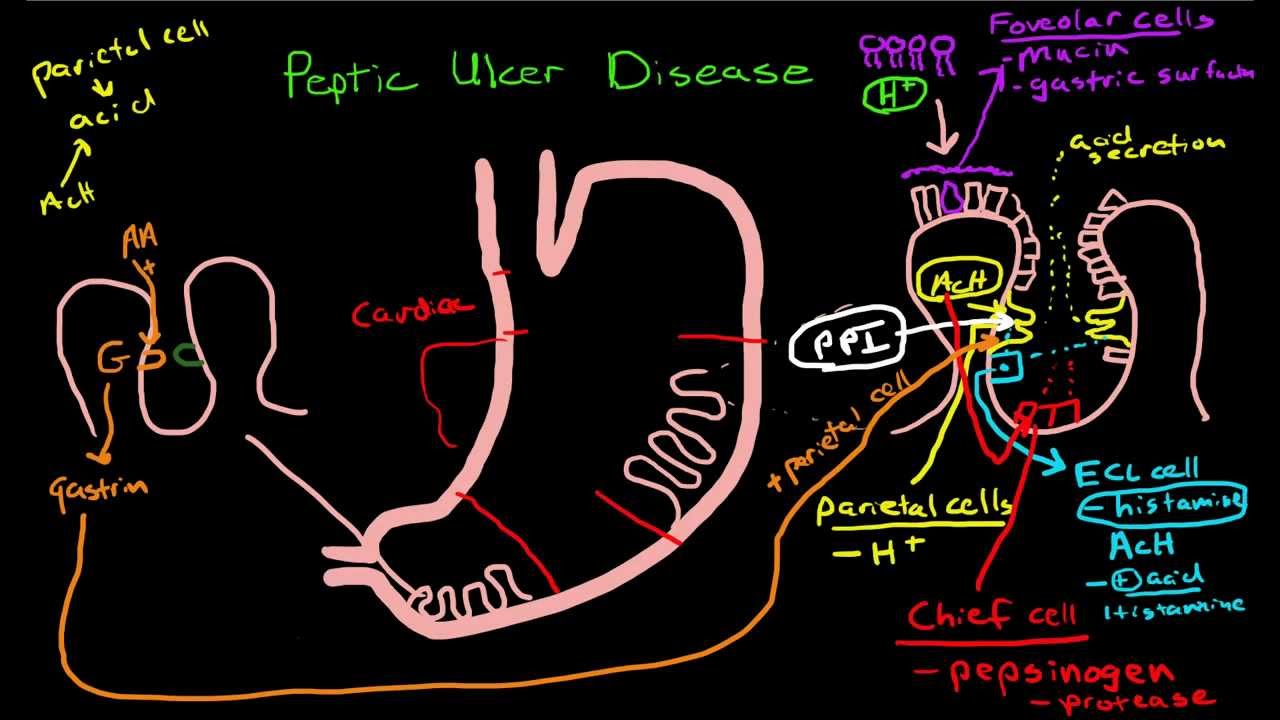 Peptic Ulcer Disease
parietal cell
acid
AcH
AA
+
G
D
C
gastrin
Cardiac
Foveolar cells
- Mucin
- gastric surfactn
H+
acid
secretion
AcH
PPI
+ parietal cell
parietal cells
- H+
ECL cell
- histamine
AcH
- + acid
Histamine
Chief cell
- pepsinogen
- protease